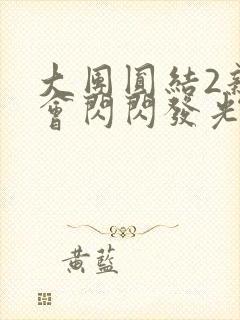 大團圓結2
會閃閃發光
黃藍